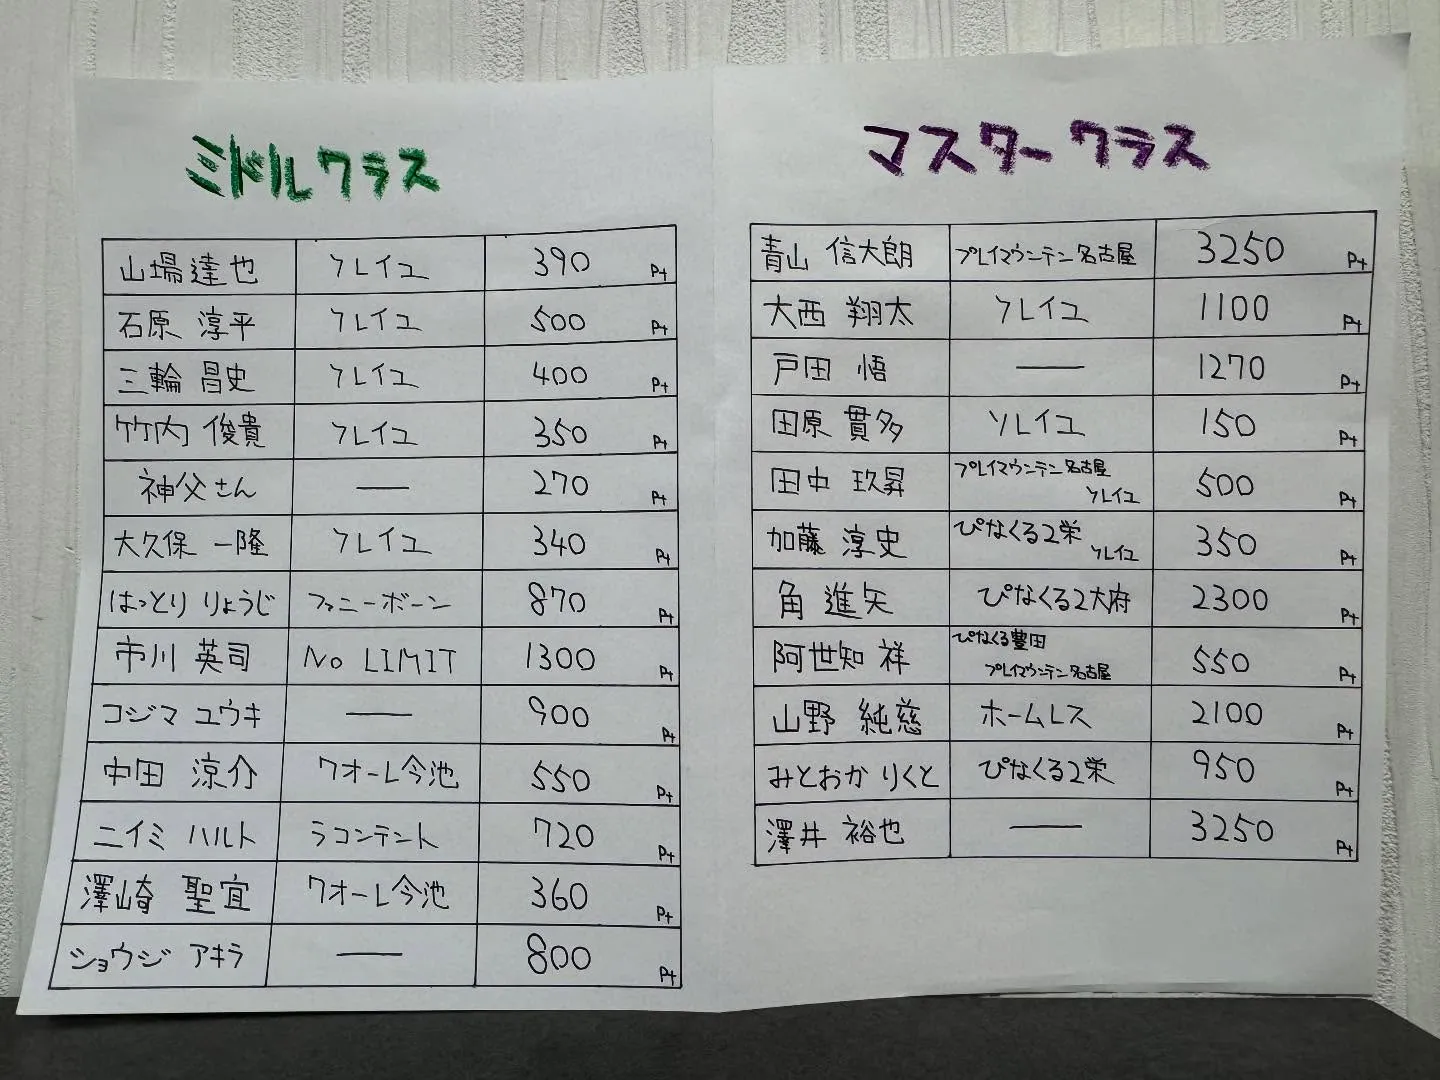 ミドルクラス
山場達也 ソレイユ 390 Pt
石原 淳平 ソレイユ 500 Pt
三輪 昌史 ソレイユ 400 Pt
竹内 俊貴 ソレイユ 350 Pt
神父さん — 270 Pt
大久保 一隆 ソレイユ 340 Pt
はっとり りょうじ ファニーボーン 870 Pt
市川 英司 No LIMIT 1300 Pt
コジマ ユウキ — 900 Pt
中田 涼介 クオーレ今池 550 Pt
ニイミ ハルト ラコンテント 720 Pt
澤崎 聖宜 クオーレ今池 360 Pt
ショウジ アキラ — 800 Pt
マスタークラス
青山 信太朗 プレイマウンテン名古屋 3250 Pt
大西 翔太 ソレイユ 1100 Pt
戸田 悟 — 1270 Pt
田原 貫多 ソレイユ 150 Pt
田中 玖昇 プレイマウンテン名古屋 ソレイユ 500 Pt
加藤 淳史 ぴなくる2栄 ソレイユ 350 Pt
角 進矢 ぴなくる2大府 2300 Pt
阿世知 祥 ぴなくる豊田 プレイマウンテン名古屋 550 Pt
山野 純慈 ホームレス 2100 Pt
みとおか りくと ぴなくる2栄 950 Pt
澤井 裕也 — 3250 Pt